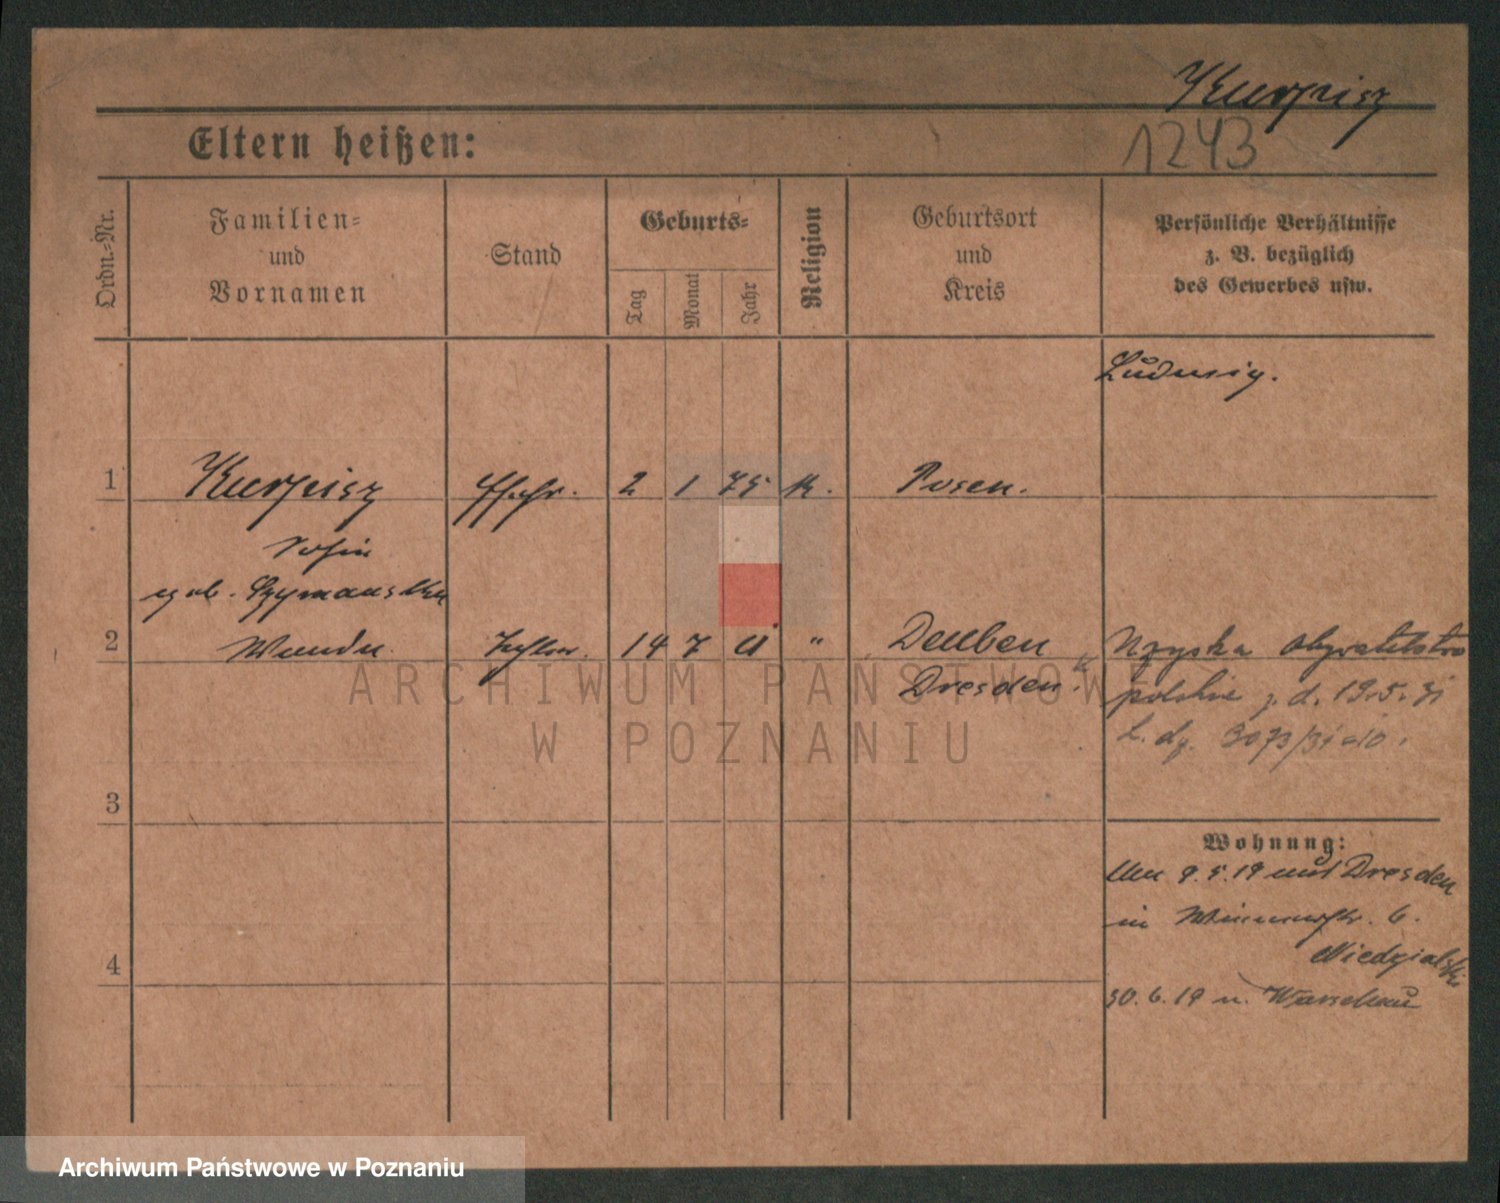 Kurpisz
1243
Eltern heißen:
Ordn.-Nr.
Familien-
und
Vornamen
Stand
Geburts-
Tag
Monat
Jahr
Religion
Geburtsort
und
Kreis
Persönliche Verhältnisse
z. B. bezüglich
des Gewerbes usw.
Ludwig.
1 Kurpisz 2 1 75 k. Posen.
Sofie
geb. Szymanska
2 Wanda 14 7 11 " Deuben
Dresden. Uzyska obywatelstwo
polskie z. d. 19.5.31
L. dz. 3073/31
3
Wohnung:
Am 9.5.19 aus Dresden
in 6.
Niedzialski
4
30.6.19 n. Warschau
ARCHIWUM PAŃSTWOWE
W POZNANIU
Archiwum Państwowe w Poznaniu